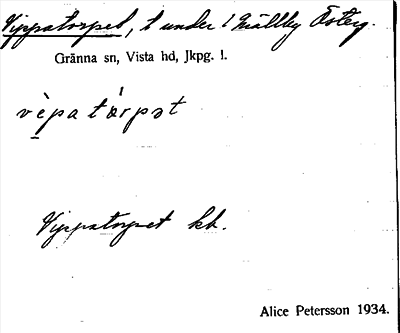 Vippatorpet, t under 1 Mällby Österg.
Gränna sn, Vista hd, Jkpg. l.
vèpa tórpət
Vippatorpet kb.
Alice Petersson 1934.